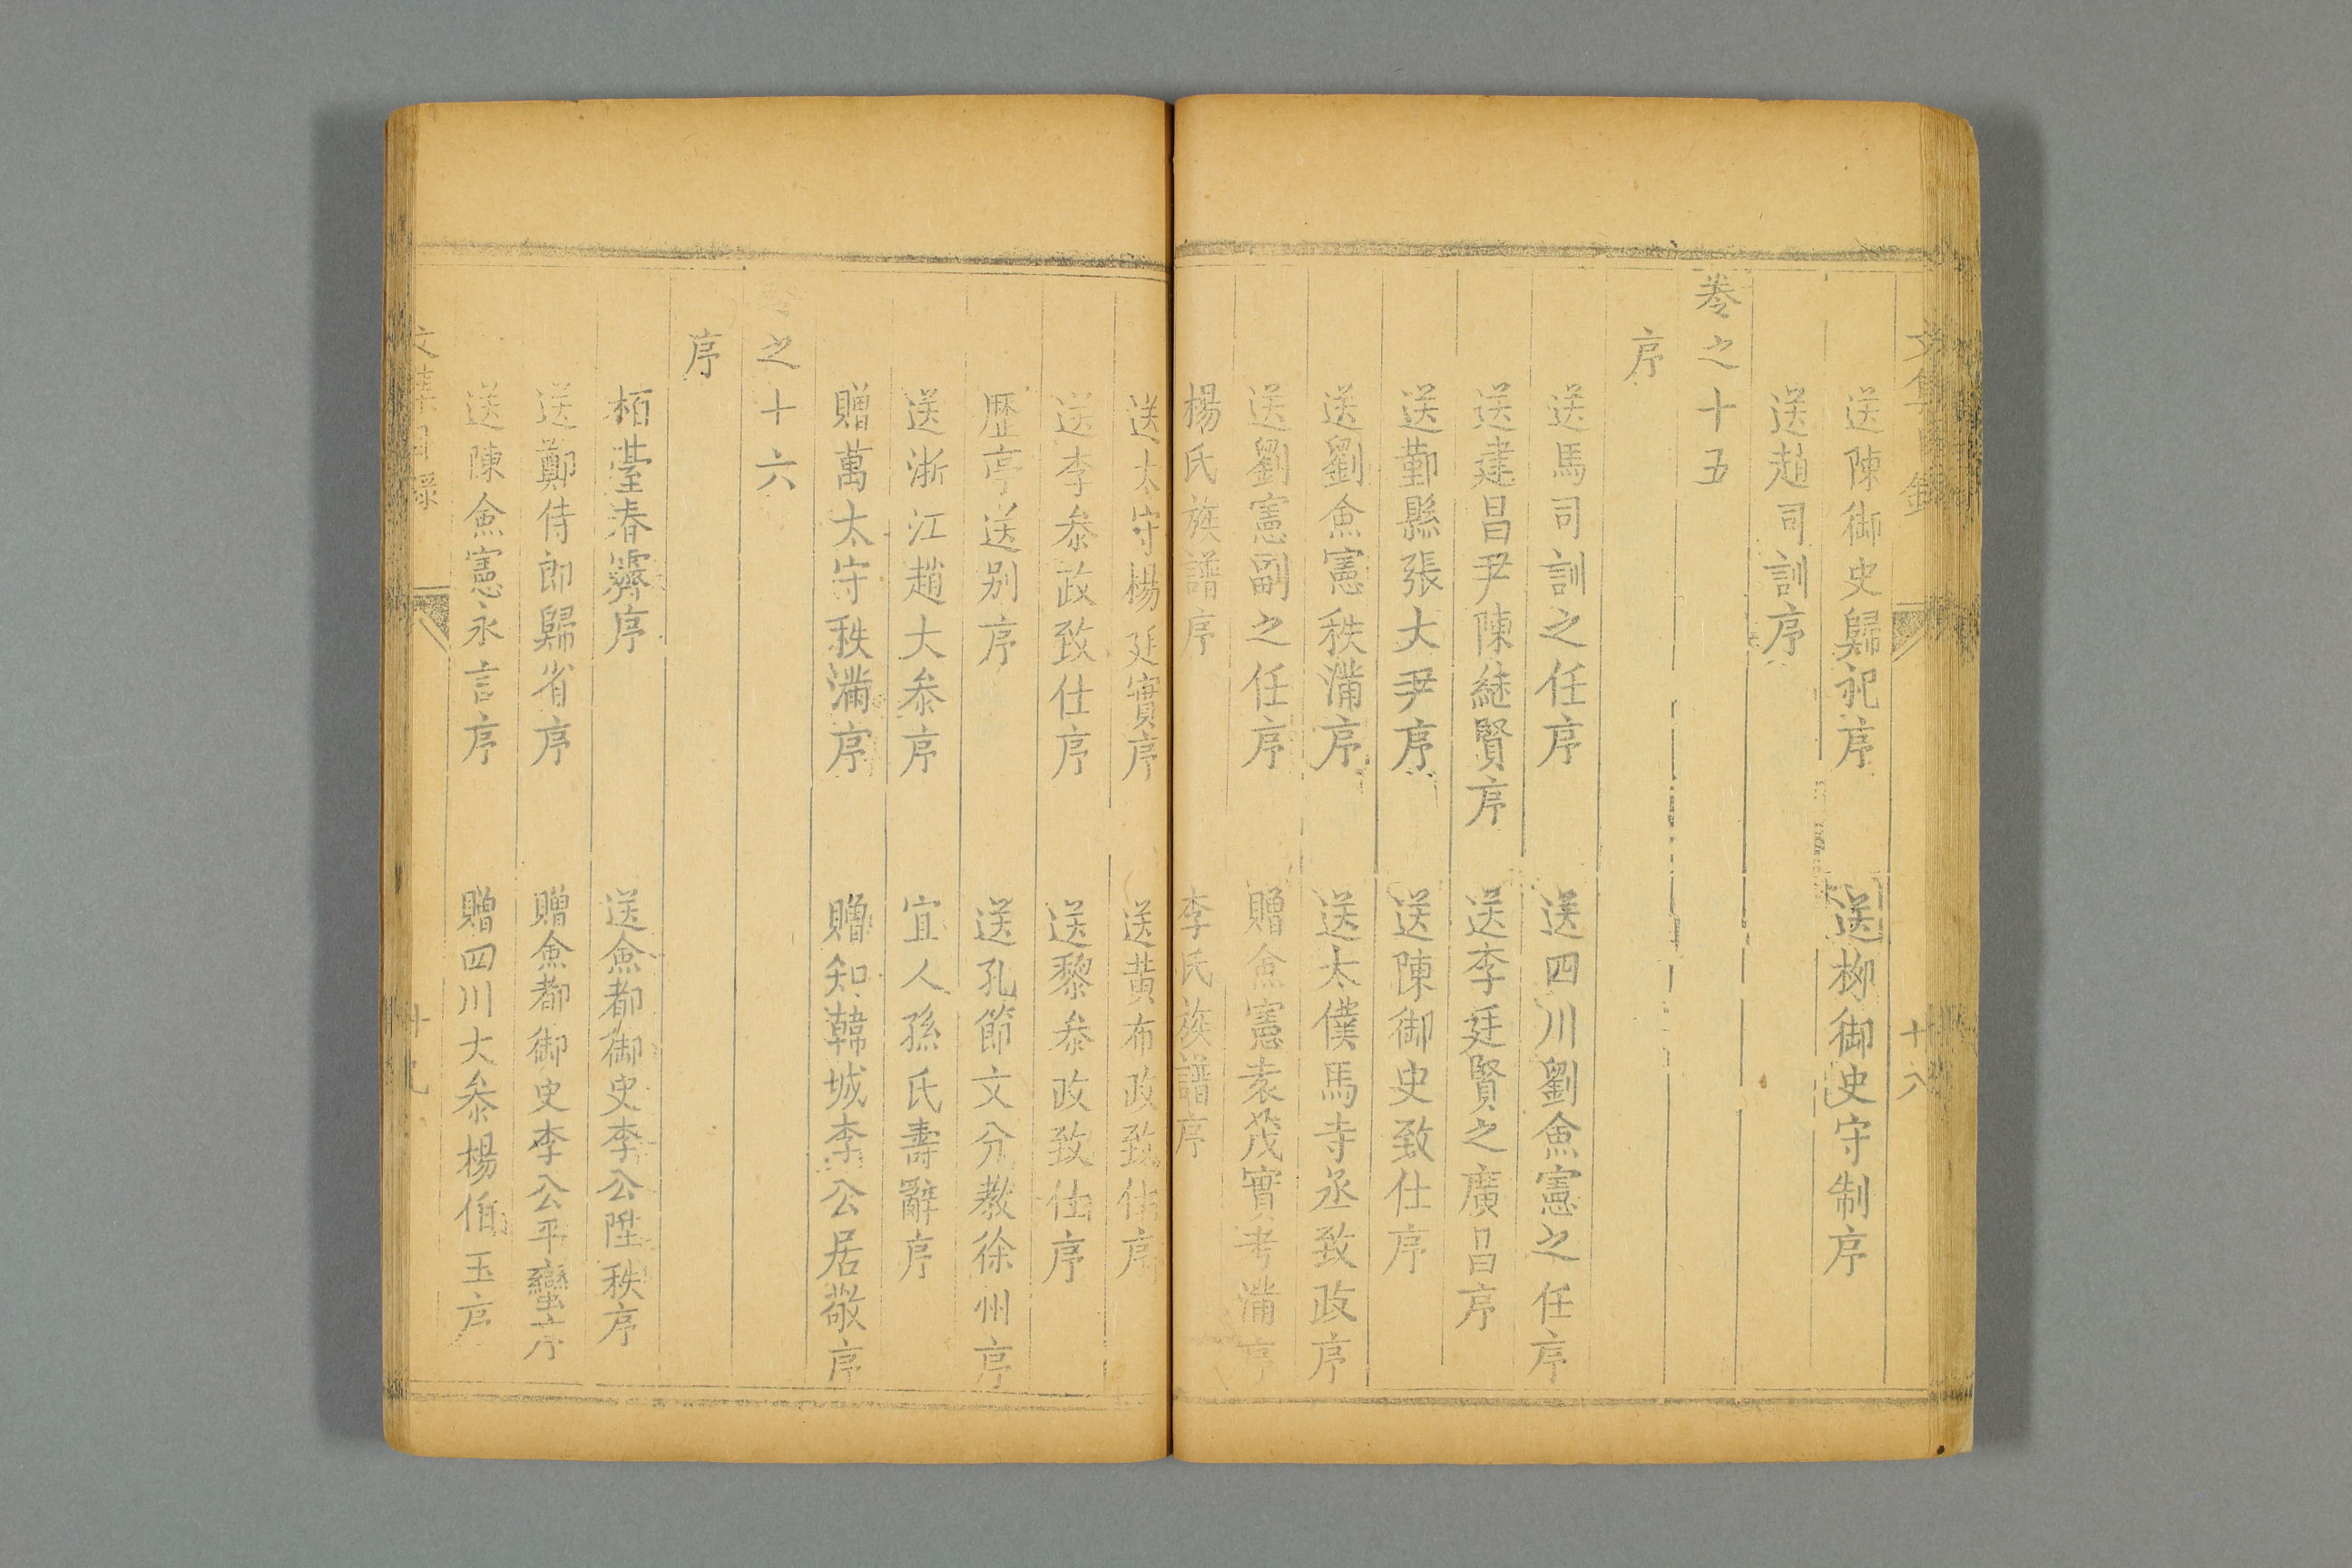 文集目錄 十八
送陳御史歸祀序 送栁御史守制序
送趙司訓序
卷之十五
序
送馬司訓之任序 送四川劉僉憲之任序
送建昌尹陳継賢序 送李廷賢之廣昌序
送鄞縣張大尹序 送陳御史致仕序
送劉僉憲秩滿序 送太僕馬寺丞致政序
送劉憲副之任序 贈僉憲袁茂實考滿序
楊氏族譜序 李氏族譜序
送太守楊廷實序 送黃布政致仕序
送李叅政致仕序 送黎叅政致仕序
歷亭送別序 送孔節文分教徐州序
送浙江趙大叅序 宜人孫氏壽辭序
贈萬太守秩滿序 贈知韓城李公居敬序
之十六
序
栢臺春霽序 送僉都御史李公陞秩序
送鄭侍郎歸省序 贈僉都御史李公平蠻序
送陳僉憲永言序 贈四川大叅楊伯玉序
文集目錄 十九